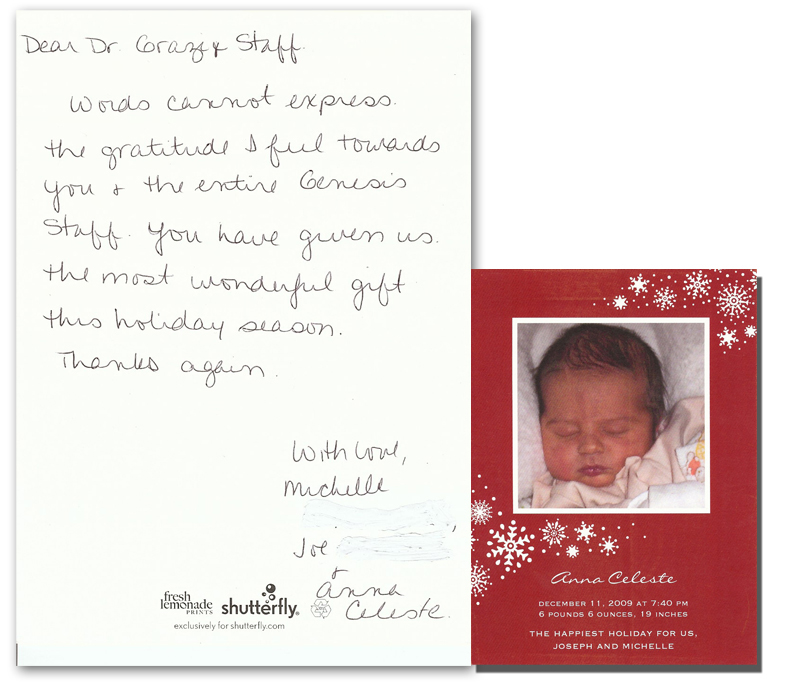 Dear Dr. Grazi & Staff.
Words cannot express.
the gratitude I feel towards
you & the entire Genesis
Staff. You have given us.
the most wonderful gift
this holiday season.
Thanks again.
With Love,
Michelle
,
Joe
&
Anna
Celeste.
fresh
lemonade
PRINTS
shutterfly®
exclusively for shutterfly.com
Anna Celeste
DECEMBER 11, 2009 AT 7:40 PM
6 POUNDS 6 OUNCES, 19 INCHES
THE HAPPIEST HOLIDAY FOR US,
JOSEPH AND MICHELLE